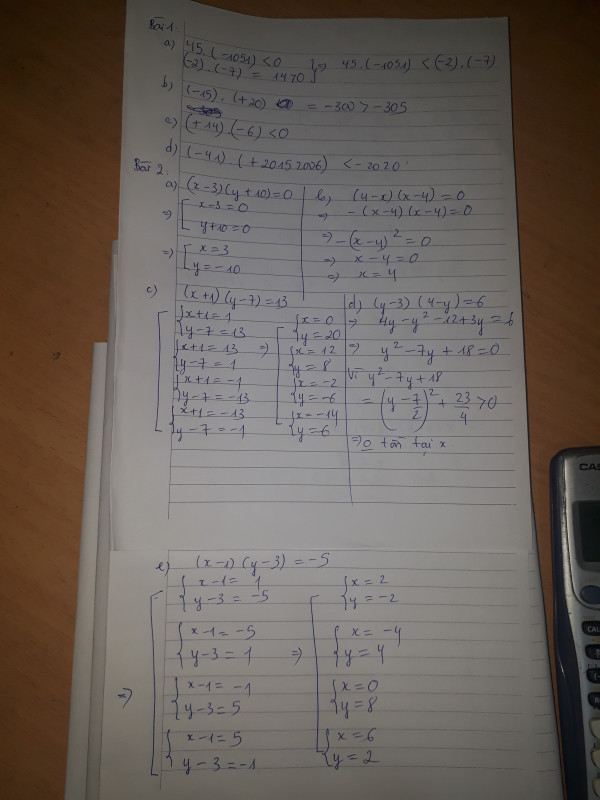 Bài 1.
a) 45.(-1051) < 0
(-2).(-7) = 14 > 0 } => 45.(-1051) < (-2).(-7)
b) (-15).(+20) = -300 > -305
c) (+14).(-6) < 0
d) (-41).(+20152006) < -2020
Bài 2.
a) (x-3)(y+10)=0
=> [ x-3=0
y+10=0
=> [ x=3
y=-10
b) (4-x)(x-4)=0
=> -(x-4)(x-4)=0
=> -(x-4)² = 0
=> x-4=0
=> x=4
c) (x+1)(y-7)=13
{ x+1=1
y-7=13
{ x+1=13
y-7=1
{ x+1=-1
y-7=-13
{ x+1=-13
y-7=-1
=> [ { x=0
y=20
{ x=12
y=8
{ x=-2
y=-6
{ x=-14
y=6
d) (y-3)(4-y)=6
=> 4y-y²-12+3y=6
=> y²-7y+18=0
Vì y²-7y+18
= (y-7/2)² + 23/4 > 0
=> o tồn tại x
e) (x-1)(y-3)=-5
=> [ { x-1=1
y-3=-5
{ x-1=-5
y-3=1
{ x-1=-1
y-3=5
{ x-1=5
y-3=-1
=> [ { x=2
y=-2
{ x=-4
y=4
{ x=0
y=8
{ x=6
y=2
CAS
CAL